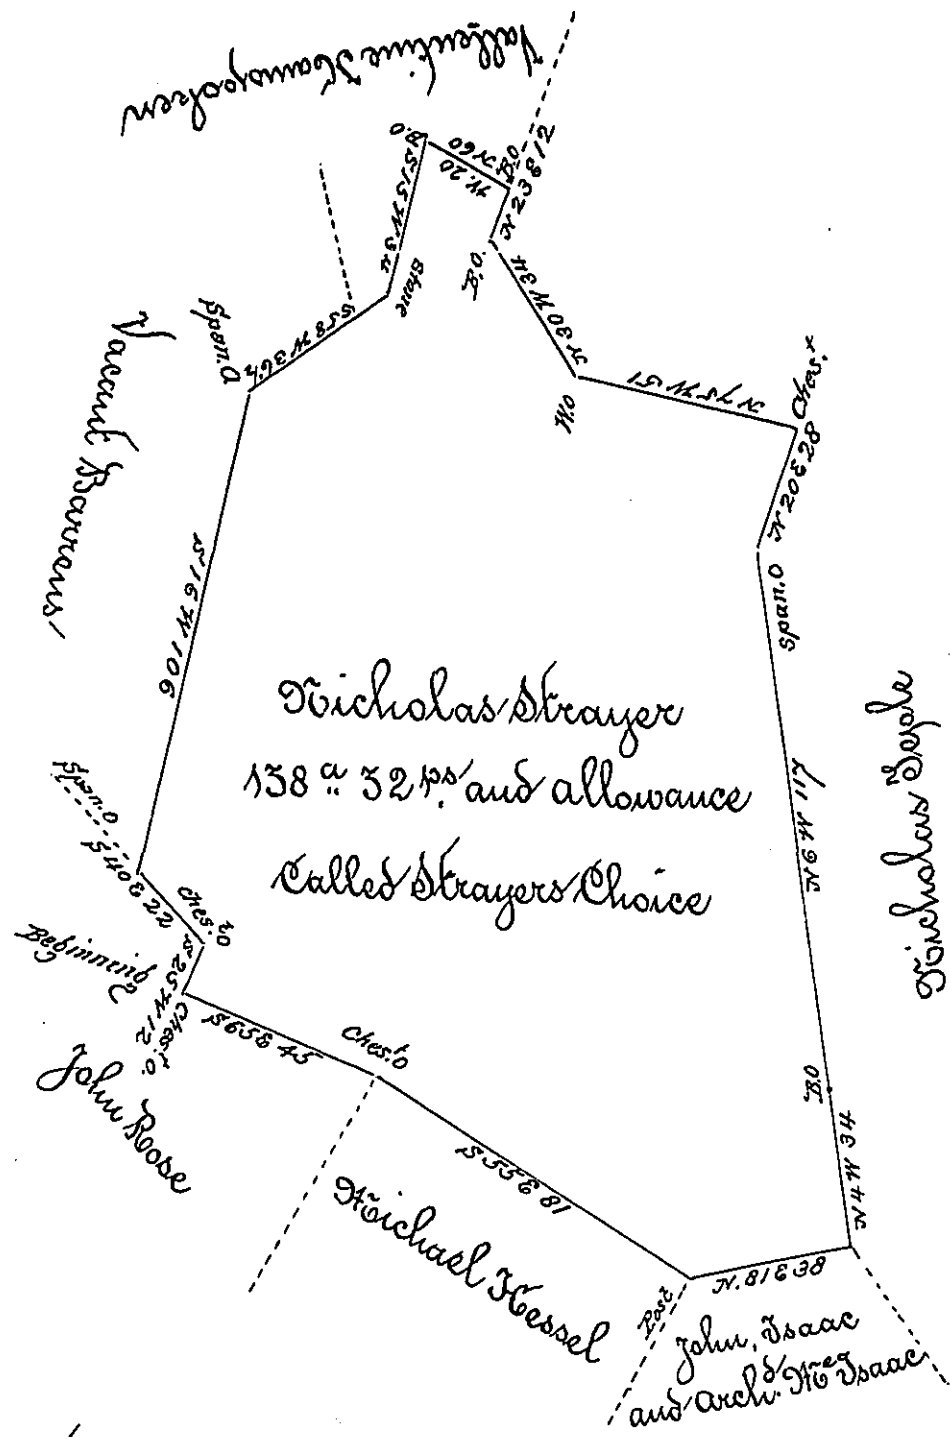 B.O
N 60
W. 20
B.O
N 23 E 12
S 15 W 34
Stone
B.O.
N 30 W 34
Span. O
S 58 W 36½
W.O
N 75 W 51
Ches.t
N 20 E 28
Span. O
Vacant Barrens
S 16 W 106
Nicholas Strayer
138 a. 32 ps. and allowance
Called Strayers Choice
N 6 W 117
Span. O
S 40 E 22
Ches.t O
Beginning
S 25 W 12
Ches.t O.
S 65 E 45
Ches.t O
John Rose
B.O
N 4 W 34
S 55 E 81
Michael Hessel
Post
N. 81 E 38
John, Isaac
and Arch.d McIsaac